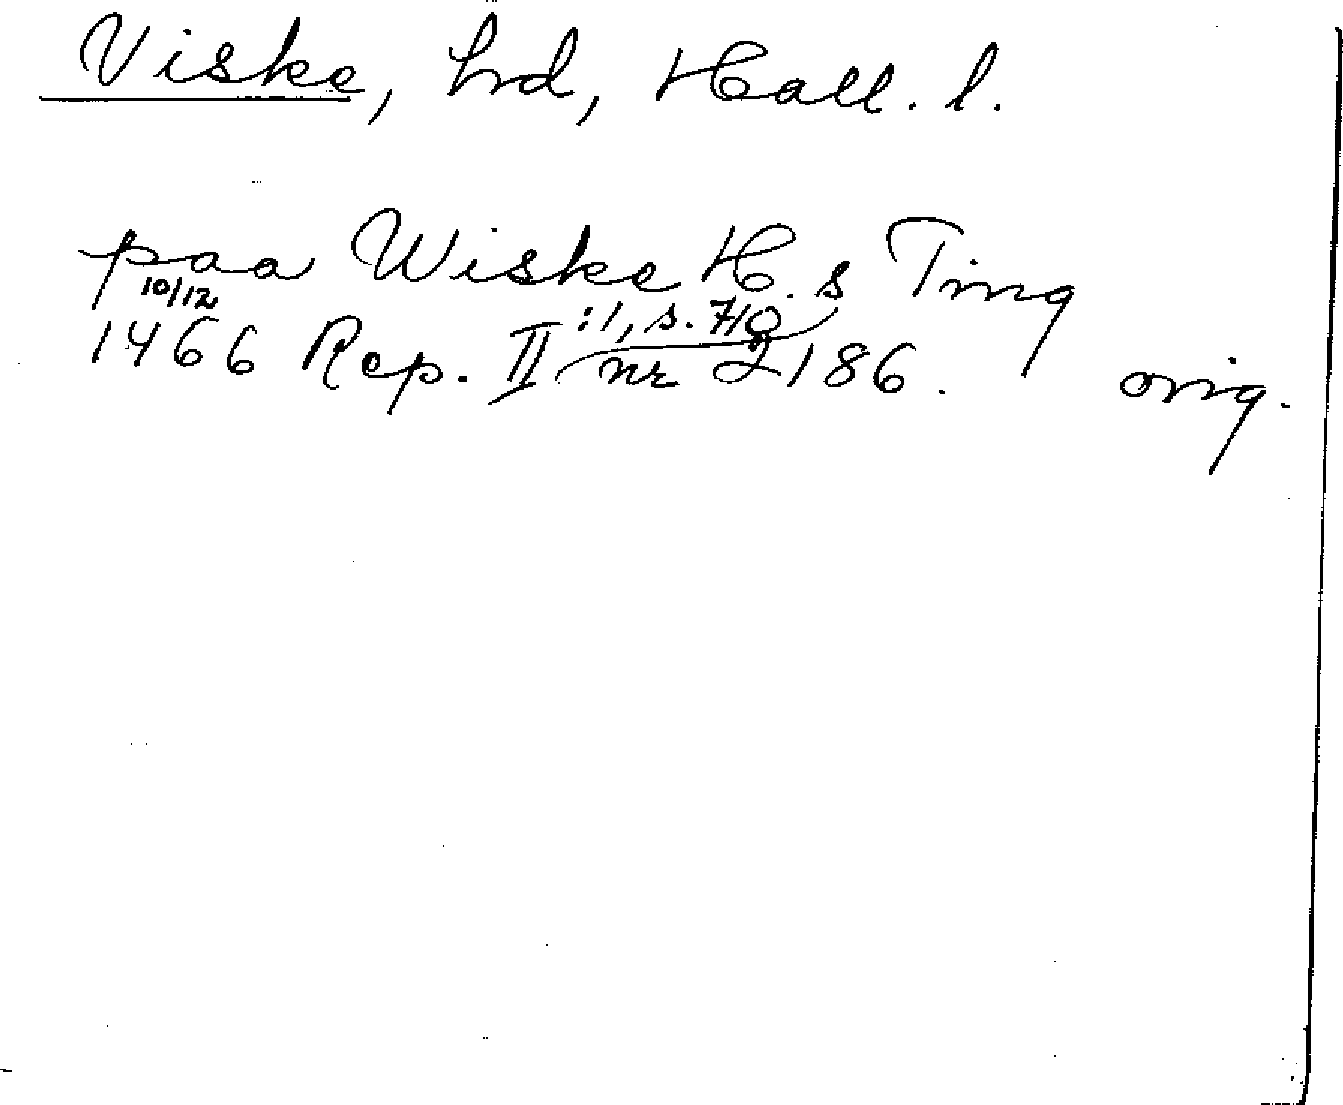 Viske, hd, Hall. l.
paa Wiske H.s Ting
10/12
:1, s. 710
1466 Rep. II nr 2186. orig.